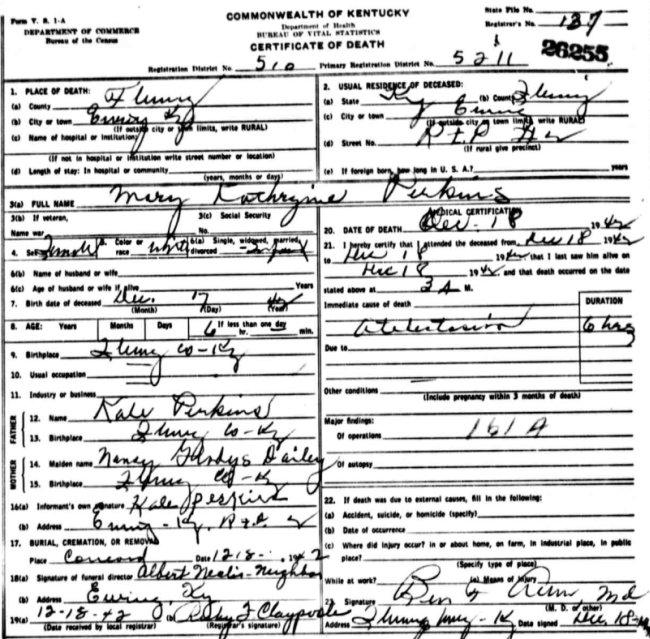 Form V. S. 1-A
DEPARTMENT OF COMMERCE
Bureau of the Census
COMMONWEALTH OF KENTUCKY
Department of Health
BUREAU OF VITAL STATISTICS
CERTIFICATE OF DEATH
State File No.
Registrar's No. 137
26255
Registration District No. 510 Primary Registration District No. 5211
1. PLACE OF DEATH:
(a) County Fleming
(b) City or town Ewing Ky
(If outside city or town limits, write RURAL)
(c) Name of hospital or institution:
(If not in hospital or institution write street number or location)
(d) Length of stay: In hospital or community
(years, months or days)
2. USUAL RESIDENCE OF DECEASED:
(a) State Ky (b) County Fleming
(c) City or town Ewing
(If outside city or town limits, write RURAL)
(d) Street No.
(If rural give precinct)
(e) If foreign born, how long in U. S. A.? years
3(a) FULL NAME Mary Kathryine Perkins
3(b) If veteran, Name war
3(c) Social Security No.
4. Sex Female 5. Color or race white 6(a) Single, widowed, married, divorced
6(b) Name of husband or wife
6(c) Age of husband or wife if alive Years
7. Birth date of deceased Dec. 17 42
(Month) (Day) (Year)
8. AGE: Years Months Days If less than one day
6 hr. min.
9. Birthplace Fleming Co-Ky
10. Usual occupation
11. Industry or business
FATHER
12. Name Kale Perkins
13. Birthplace Fleming Co-Ky
MOTHER
14. Maiden name Nancy Gladys Dailey
15. Birthplace Fleming Co-Ky
16(a) Informant's own signature Kale Perkins
(b) Address Ewing-Ky.
17. BURIAL, CREMATION, OR REMOVAL
Place Concord Date 12-18- 1942
18(a) Signature of funeral director Albert Neelis-Neighbor
(b) Address Ewing Ky
19(a) 12-18-42 (b) Ruby F Claypoole
(Date received by local registrar) (Registrar's signature)
MEDICAL CERTIFICATION
20. DATE OF DEATH Dec. 18 1942
21. I hereby certify that I attended the deceased from Dec 18 1942
to Dec 18 1942 that I last saw him alive on
Dec 18 1942 and that death occurred on the date
stated above at 3 A M.
Immediate cause of death DURATION
Atelectasis 6 hrs
Due to
Other conditions
(Include pregnancy within 3 months of death)
Major findings:
Of operations 161A
Of autopsy
22. If death was due to external causes, fill in the following:
(a) Accident, suicide, or homicide (specify)
(b) Date of occurrence
(c) Where did injury occur? in or about home, on farm, in industrial place, in public
place?
(Specify type of place)
While at work? (e) Means of injury
23. Signature Ben F M D
(M. D. or other)
Address Ky Date signed Dec. 18-42